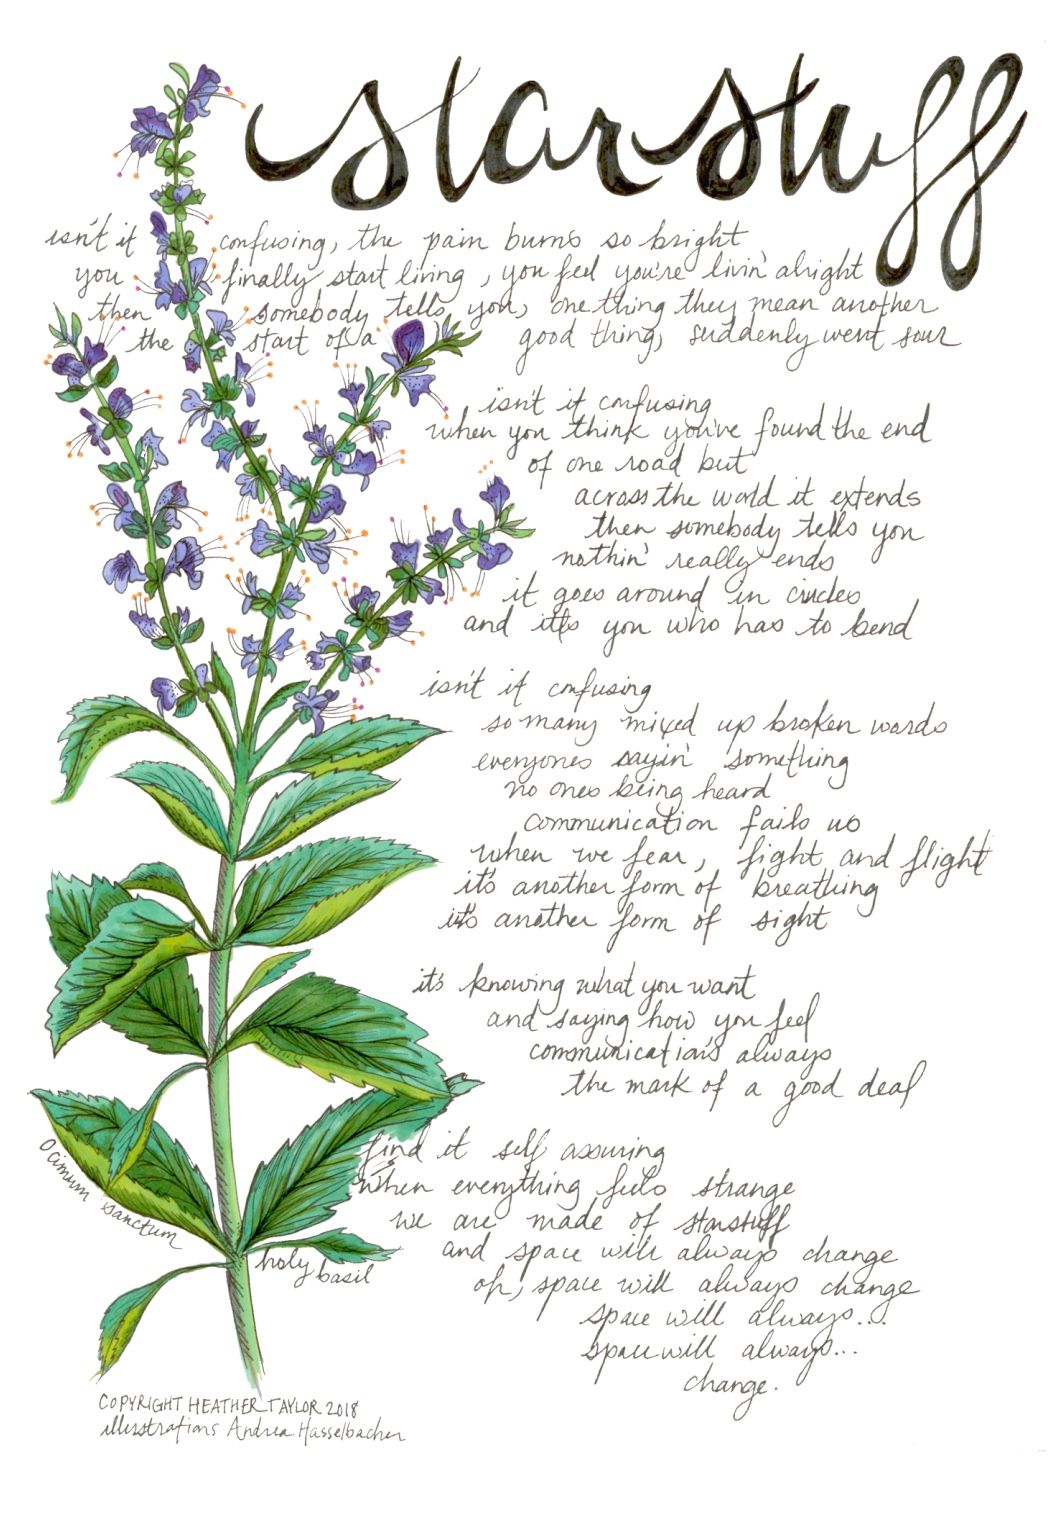 starstuff
isn't it confusing, the pain burns so bright
you finally start living, you feel you're livin' alright
then somebody tells you, one thing they mean another
the start of a good thing, suddenly went sour
isn't it confusing
when you think you've found the end
of one road but
across the world it extends
then somebody tells you
nothin' really ends
it goes around in circles
and it's you who has to bend
isn't it confusing
so many mixed up broken words
everyones sayin' something
no ones being heard
communication fails us
when we fear, fight and flight
it's another form of breathing
it's another form of sight
it's knowing what you want
and saying how you feel
communication's always
the mark of a good deal
find it self assuring
when everything feels strange
we are made of starstuff
and space will always change
oh, space will always change
space will always...
space will always...
change.
Ocimum sanctum
holy basil
COPYRIGHT HEATHER TAYLOR 2018
illustrations Andrea Hasselbacher